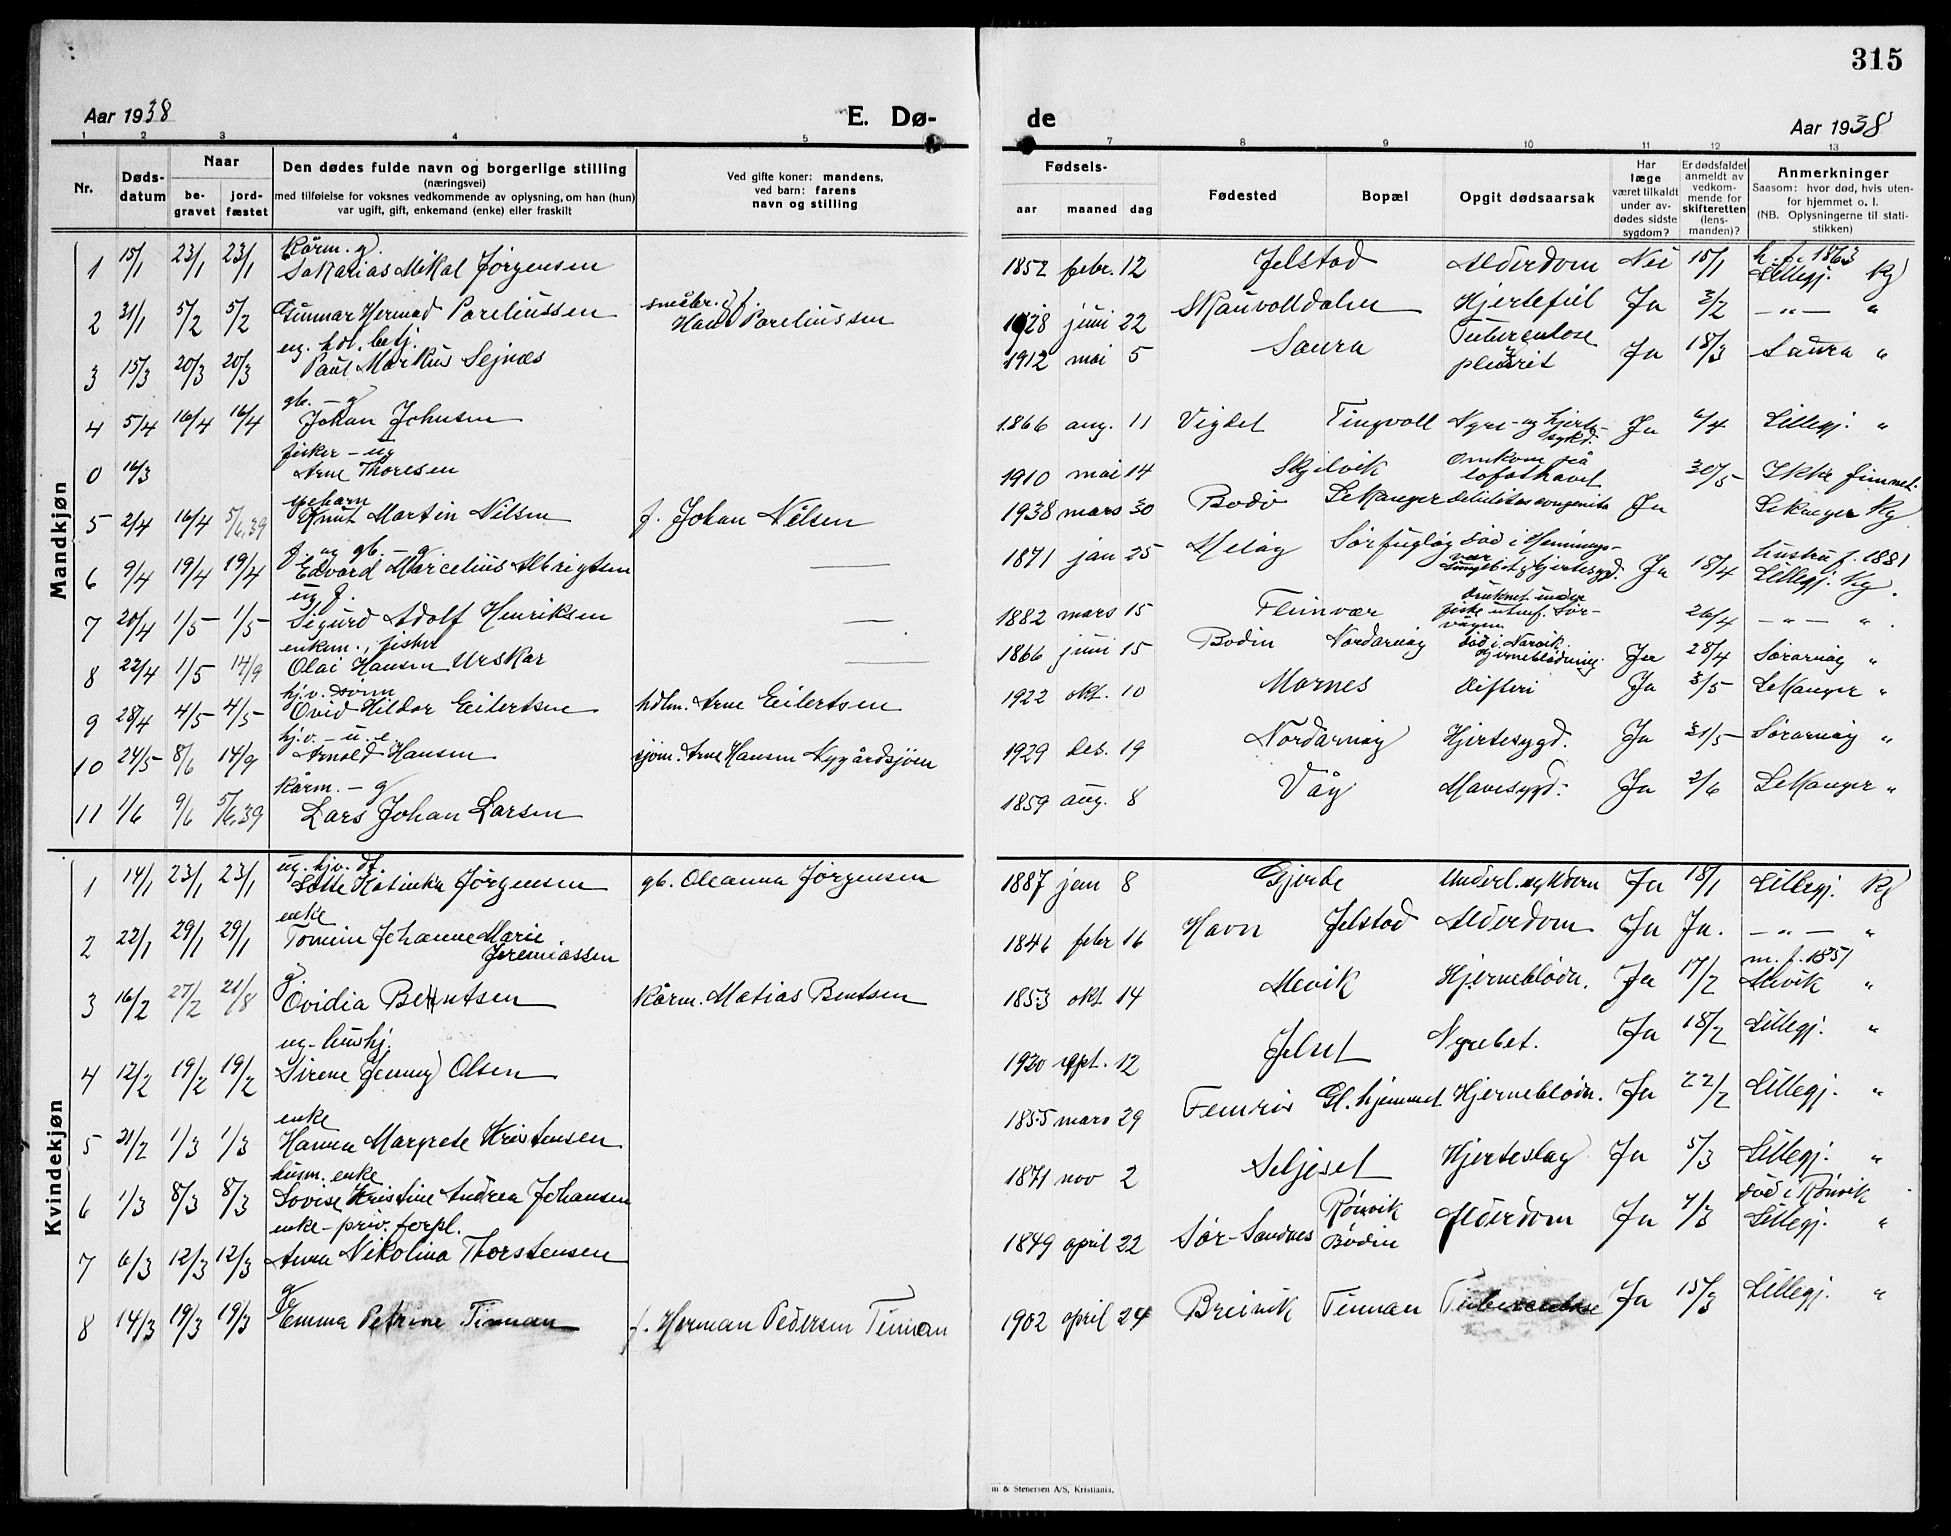 315
Aar 1938 E. Dø- de Aar 1938
1 2 3 4 5 7 8 9 10 11 12 13
Nr. Dødsdatum Naar begravet jordfæstet
Den dødes fulde navn og borgerlige stilling
(næringsvei)
med tilføielse for voksnes vedkommende av oplysning, om han (hun)
var ugift, gift, enkemand (enke) eller fraskilt
Ved gifte koner: mandens,
ved barn: farens
navn og stilling
Fødsels- aar maaned dag
Fødested Bopæl Opgit dødsaarsak
Har læge været tilkaldt under avdødes sidste sygdom?
Er dødsfaldet anmeldt av vedkommende for skifteretten (lensmanden)?
Anmerkninger
Saasom: hvor død, hvis utenfor hjemmet o. l.
(NB. Oplysningerne til statistikken)
Mandkjøn
kårm. g.
1 15/1 23/1 23/1 Sakarias Mikal Jørgensen 1852 febr. 12 Jelstad Alderdom Nei 15/1 h. f. 1863 Lillegj. Kg
2 31/1 5/2 5/2 Gunnar Hermod Pareliussen snebr. f. Hans Pareliussen 1928 juni 22 Skauvolldalen Hjertefeil Ja 3/2 — " — "
ug. hdl. betj.
3 15/3 20/3 20/3 Paul Markus Sejnæs 1912 mai 5 Saura Tuberculose pleurit Ja 18/3 Saura "
gb. - g
4 5/4 16/4 16/4 Johan Johnsen 1866 aug. 11 Vigdel Tingvoll Nyre- og hjertesykd. Ja 6/4 Lillegj. "
fisker - ug
0 16/3 Arne Thoresen 1910 mai 14 Skjelvik Omkom på Lofothavet 30/5 Ikke funnet.
5 2/4 16/4 5/6.39 Knut Martin Nilsen f. Johan Nilsen 1938 mars 30 Bodø Lekanger debilitas congenita Ja Lekanger Kg
f. og gb. - g
6 9/4 19/4 19/4 Edvard Marcelius Albrigtsen — 1871 jan 25 Meløy Sørfugløy død i Henningsvær Lungebet. Hjertesygd. Ja 18/4 hustru f. 1881 Lillegj. Kg.
ug f.
7 20/4 1/5 1/5 Sigurd Adolf Henriksen — 1882 mars 15 Fleinvær druknet under fiske utenf. Sørvågen 26/4 — " — "
enkem., fisker
8 22/4 1/5 14/9 Olai Hansen Urskar — 1866 juni 15 Bodin Nordarnøy død i Narvik. Hjerneblødning. Ja 28/4 Sørarnøy "
hj.v. sønn
9 28/4 4/5 4/5 Ovid Hildor Eilertsen hdlm. Arne Eilertsen 1922 okt. 10 Mornes difteri Ja 3/5 Lekanger "
hj.v. - u. e.
10 24/5 8/6 14/9 Arnold Hansen sjøm. Arne Hansen Nygårdsjøen 1929 des. 19 Nordarnøy Hjertesygd. Ja 31/5 Sørarnøy "
kårm. - g
11 1/6 9/6 5/6.39 Lars Johan Larsen 1859 aug. 8 Våg Mavesygd. Ja 2/6 Lekanger "
Kvindekjøn
ug. hjv. dt.
1 14/1 23/1 23/1 Lotte Katinka Jørgensen gb. Oleanna Jørgensen 1887 jan 8 Gjerde Ja 18/1 Lillegj. Kg
enke
2 22/1 29/1 29/1 Tomine Johanne Marie Jeremiassen 1846 febr 16 Havn Jelstad Alderdom Ja Ja. — " — "
g
3 16/2 27/2 21/8 Ovidia Bentsen kårm. Matias Bentsen 1853 okt 14 Mevik Hjerneblødn. Ja 17/2 m. f. 1857 Mevik "
ug - hushj.
4 12/2 19/2 19/2 Sirene Jenny Olsen 1920 sept. 12 Jelset Nyrebet. Ja 18/2 Lillegj. "
enke
5 21/2 1/3 1/3 Hanna Margrete Kristensen 1855 mars 29 Femris Gl. hjemmet Hjerneblødn. Ja 22/2 Lillegj. "
husm. enke
6 1/3 8/3 8/3 Lovise Kristine Andrea Johansen 1871 nov 2 Seljeset Hjerteslag Ja 5/3 Lillegj. "
enke - priv. forpl.
7 6/3 12/3 12/3 Anna Nikolina Thorstensen 1849 april 22 Sør-Sandnes Rønvik Bodin Alderdom Ja 7/3 død i Rønvik Lillegj. "
g
8 14/3 19/3 19/3 Emma Petrine Finnan f. Herman Pedersen Finnan 1902 april 24 Breivik Finnan Tuberculose Ja 15/3 Lillegj. "
m & Stenersen A/S, Kristiania.